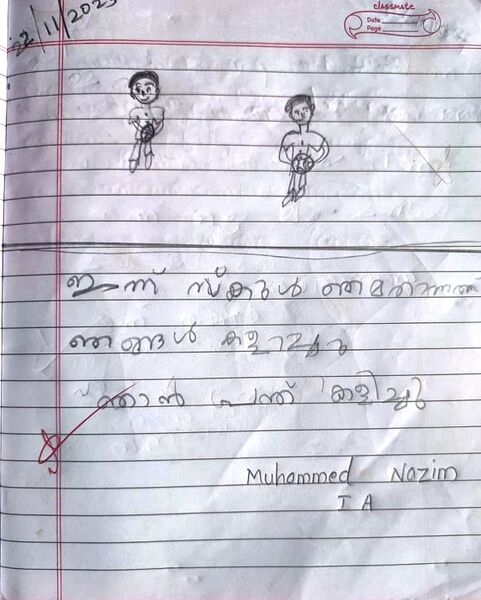 classmate
Date
Page
22/11/2023
ഇന്ന് സ്കുൾ
ഞങ്ങൾ കളിച്ചു
ഞാൻ പന്ത് കളിച്ചു
Muhammed Nazim
I A